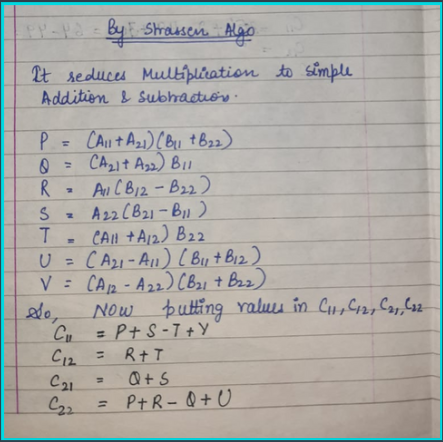 By Strassen Algo
It reduces Multiplication to simple
Addition & Subtraction.
P = (A11 + A21) (B11 + B22)
Q = (A21 + A22) B11
R = A11 (B12 - B22)
S = A22 (B21 - B11)
T = (A11 + A12) B22
U = (A21 - A11) (B11 + B12)
V = (A12 - A22) (B21 + B22)
So, Now putting values in C11, C12, C21, C22
C11 = P + S - T + V
C12 = R + T
C21 = Q + S
C22 = P + R - Q + U